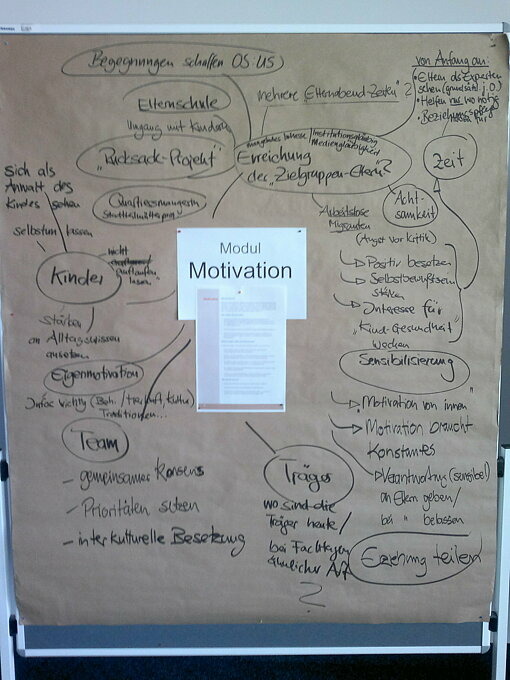 Begegnungen schaffen OS:US
von Anfang an:
• Eltern als Experten
sehen (grundsätzl. i.O.)
• Helfen nur wo nötig
• Beziehungspflege
Elternschule
mehrere "Elternabend-Zeiten" ?
Umgang mit Kindern
"Rucksack-Projekt"
Institutionsgläubig
Mediengläubigkeit
Erreichung
der "Zielgruppen-Eltern"?
Zeit
Quartiersmanagerin
Stadtteilmütter
Acht-
samkeit
sich als
Anwalt des
Kindes sehen
selbstun lassen
Arbeitslose
Migranten
(Angst vor Kritik)
Positiv besetzen
Selbstbewußtsein
stärken
Interesse für
"Kind-Gesundheit"
wecken
Sensibilisierung
nicht
auflaufen
lassen
Kinder
Modul
Motivation
stärken
an Alltagswissen
ansetzen
Eigenmotivation
Infos wichtig
Kultur)
Traditionen...
Motivation von innen"
Motivation braucht
Konstantes
Verantwortung (sensibel)
an Eltern geben/
bei " belassen
Erziehung teilen
Team
- gemeinsamer Konsens
- Prioritäten setzen
- interkulturelle Besetzung
Träger
wo sind die
Träger heute/
bei Fachtagen
ähnlicher Art
?